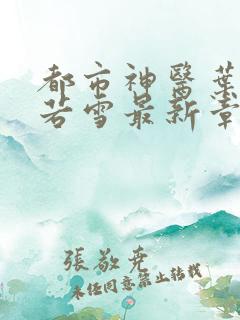 都市神醫葉
若雪最新章
張敬堯
未經同意禁止轉載